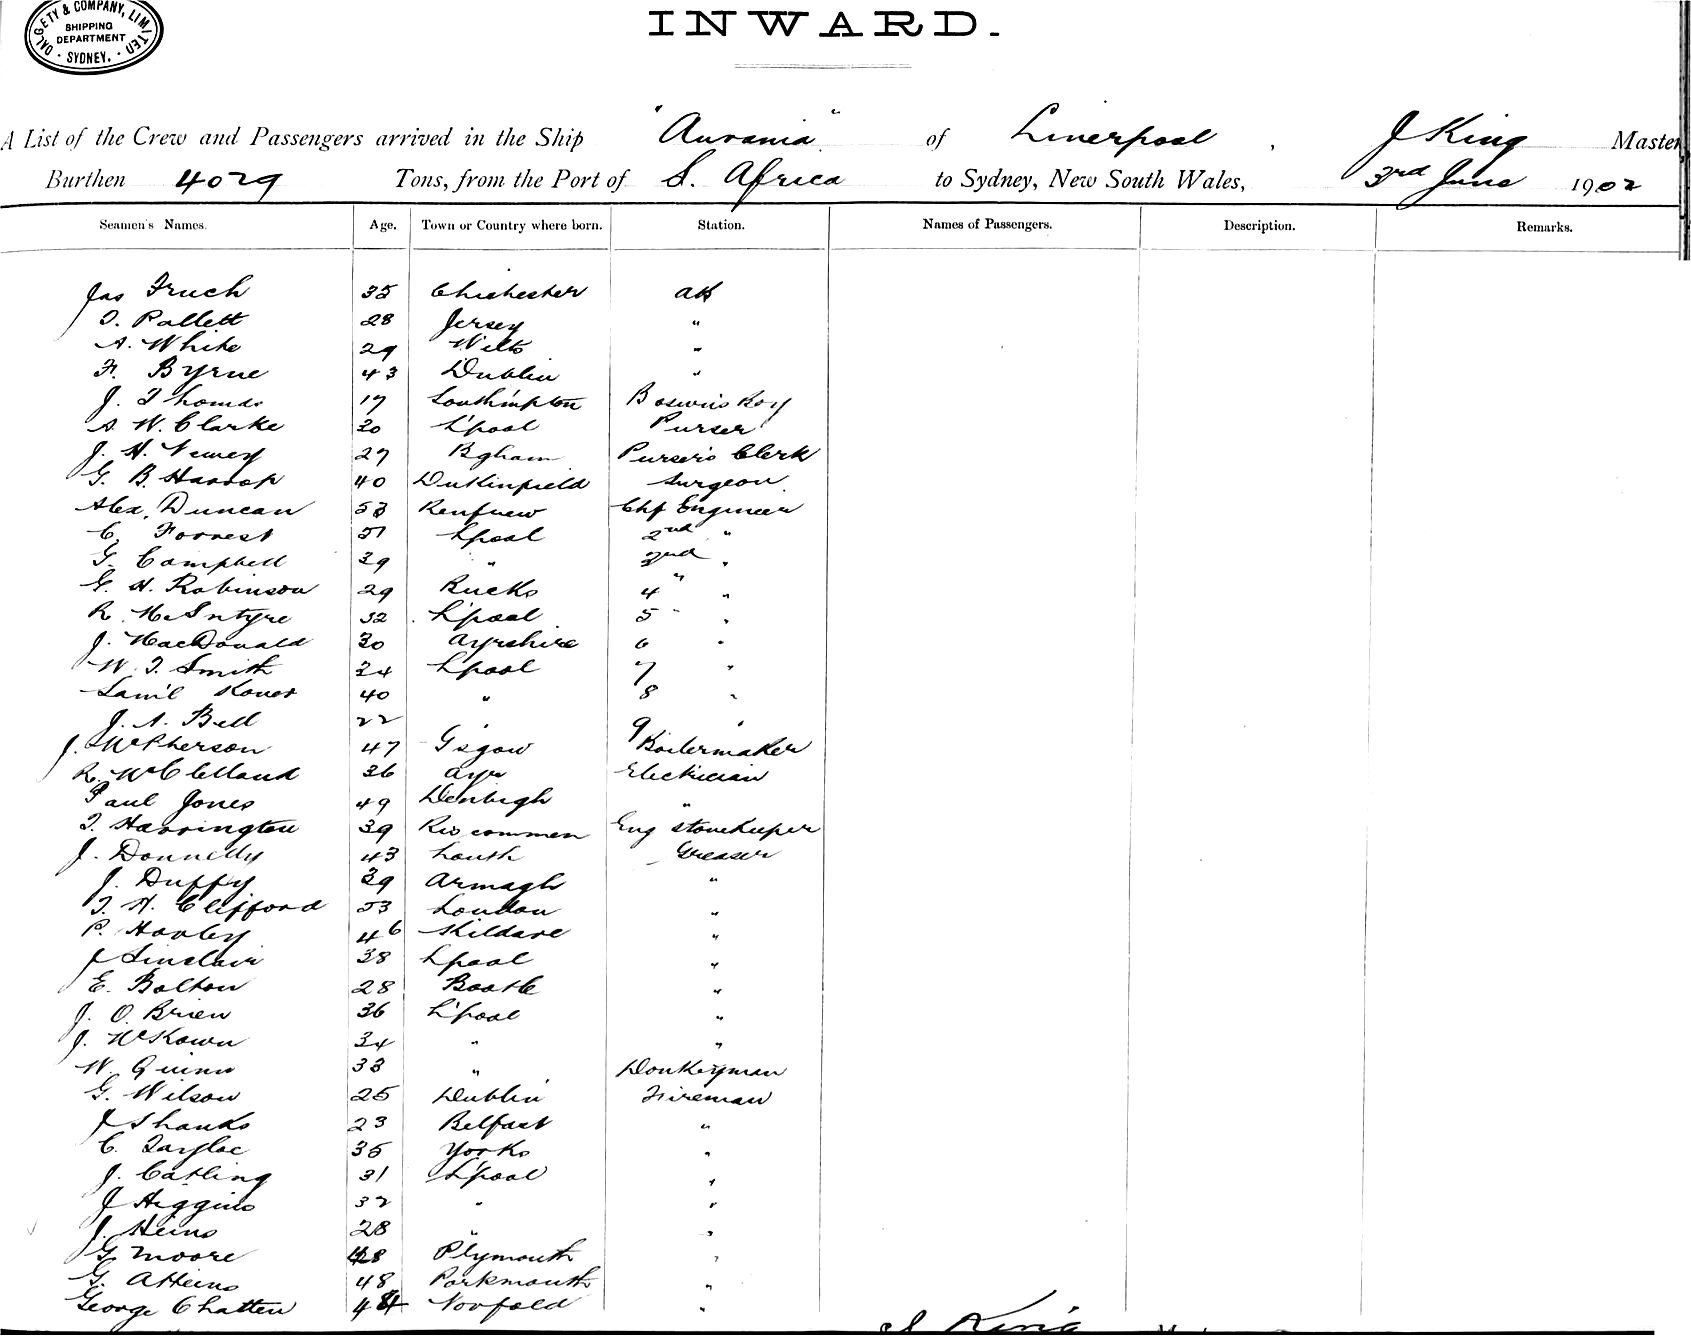 DALGETY & COMPANY, LIMITED
SHIPPING
DEPARTMENT
· SYDNEY. ·
INWARD.
A List of the Crew and Passengers arrived in the Ship "Aurania" of Liverpool, J King Master,
Burthen 4029 Tons, from the Port of S. Africa to Sydney, New South Wales, 3rd June 1902
Seamen's Names. Age. Town or Country where born. Station. Names of Passengers. Description. Remarks.
Jas 35 Chichester AB
T. Pallett 28 Jersey "
A. White 29 Wilts "
F. Byrne 43 Dublin "
J. Thomas 17 Southimpton Boswins Boy
A. W. Clarke 30 L'pool Purser
J. H. Newey 27 Bgham Purser's Clerk
G. B. Harrop 40 Dukinfield Surgeon
Alex. Duncan 53 Renfrew Chf Engineer
C. Forrest 51 Lpool 2nd "
G. Campbell 39 " 3rd "
G. H. Robinson 29 Bucks 4 " "
R. McIntyre 32 L'pool 5 " "
J. MacDonald 30 Ayrshire 6 "
W. T. Smith 34 Lpool 7 "
Saml 40 " 8 "
J. A. Bell 22 " 9 "
J. McPherson 47 Gsgow Boilermaker
R. McClelland 36 Ayr Electrician
Paul Jones 49 Denbigh "
T. Harrington 39 Roscommon Eng Storekeeper
J. Donnelly 43 Louth Greaser
J. Duffy 39 Armagh "
T. H. Clifford 53 London "
P. Hanley 46 Kildare "
J Sinclair 38 Lpool "
E. Bolton 28 Bootle "
J. O'Brien 36 L'pool "
J. McKown 34 " "
W. Quinn 33 " Donkeyman
G. Wilson 25 Dublin Fireman
J Shanks 23 Belfast "
C. Tayloe 35 Yorks "
J. Catling 31 L'pool "
J Higgins 32 " "
J. Heins 28 " "
G. Moore 48 Plymouth "
G. Atkins 48 Portsmouth "
George Chatten 44 Norfold "
J King